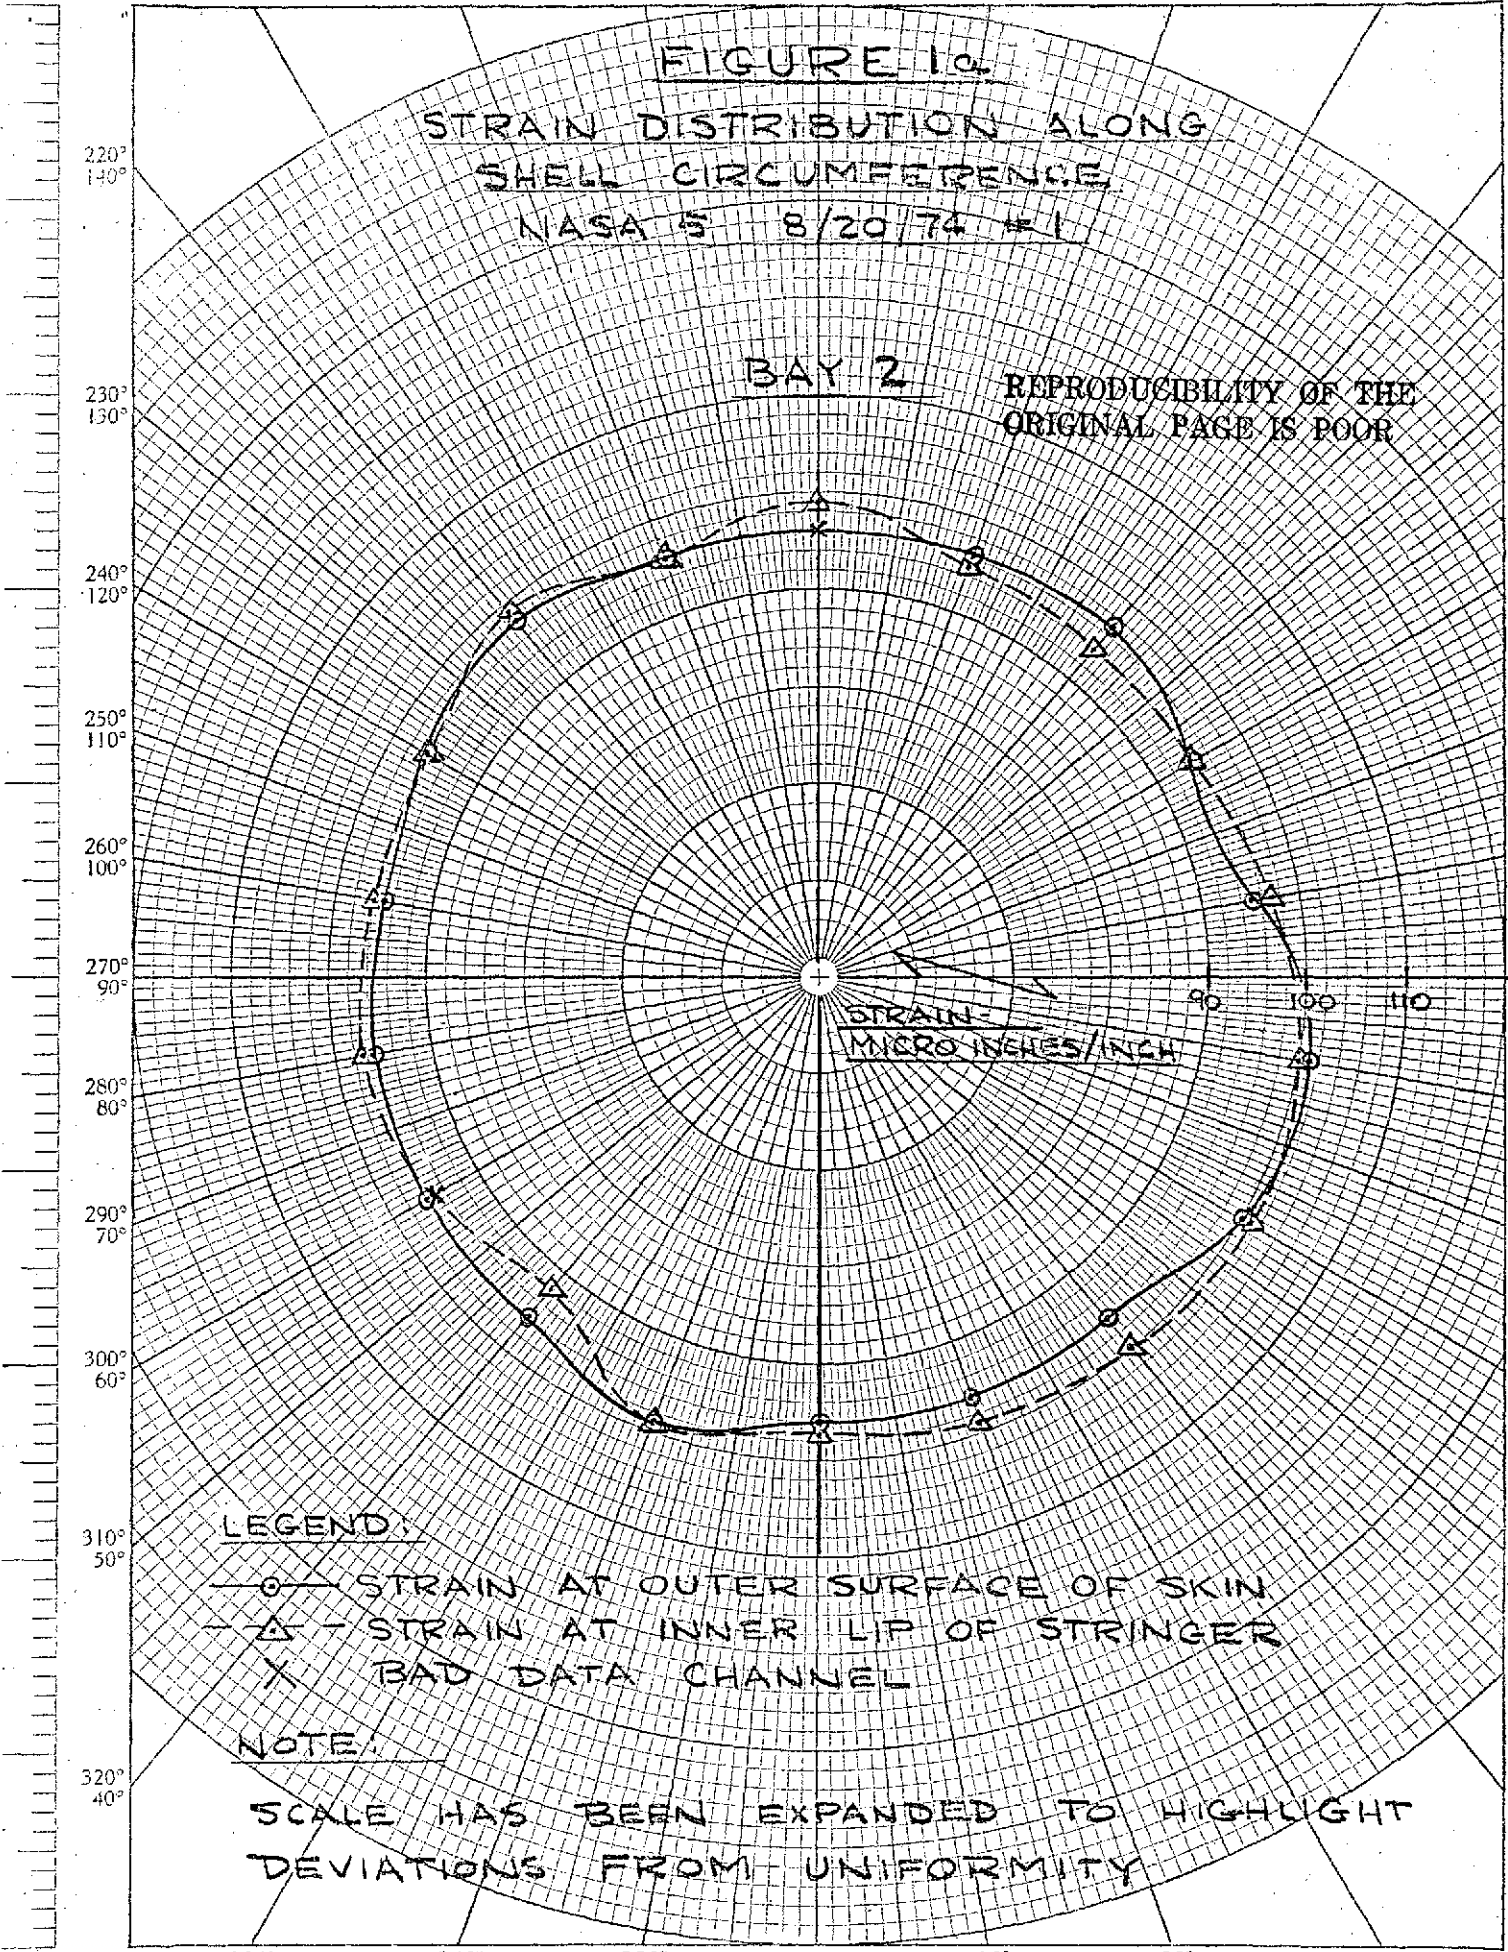 FIGURE 1a
STRAIN DISTRIBUTION ALONG
SHELL CIRCUMFERENCE
NASA 5 8/20/74 #1
BAY 2
REPRODUCIBILITY OF THE
ORIGINAL PAGE IS POOR
220°
140°
230°
130°
240°
120°
250°
110°
260°
100°
270°
90°
280°
80°
290°
70°
300°
60°
310°
50°
320°
40°
90 100 110
STRAIN-
MICRO INCHES/INCH
LEGEND:
STRAIN AT OUTER SURFACE OF SKIN
STRAIN AT INNER LIP OF STRINGER
X BAD DATA CHANNEL
NOTE:
SCALE HAS BEEN EXPANDED TO HIGHLIGHT
DEVIATIONS FROM UNIFORMITY